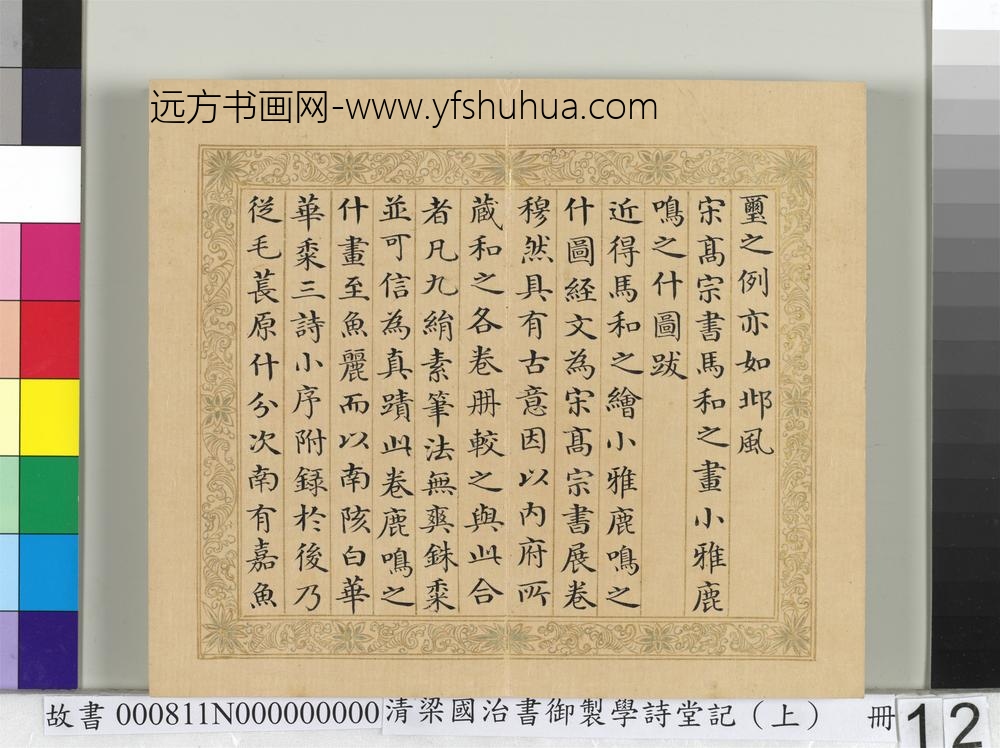 远方书画网-www.yfshuhua.com
璽之例亦如邶風
宋髙宗書馬和之畫小雅鹿
鳴之什圖跋
近得馬和之繪小雅鹿鳴之
什圖經文為宋髙宗書展卷
穆然具有古意因以内府所
蔵和之各卷册較之與此合
者凡九絹素筆法無爽銖桼
並可信為真蹟此卷鹿鳴之
什畫至魚麗而以南陔白華
華桼三詩小序附録於後乃
従毛萇原什分次南有嘉魚
故書 000811N000000000 清梁國治書御製學詩堂記（上） 冊
12